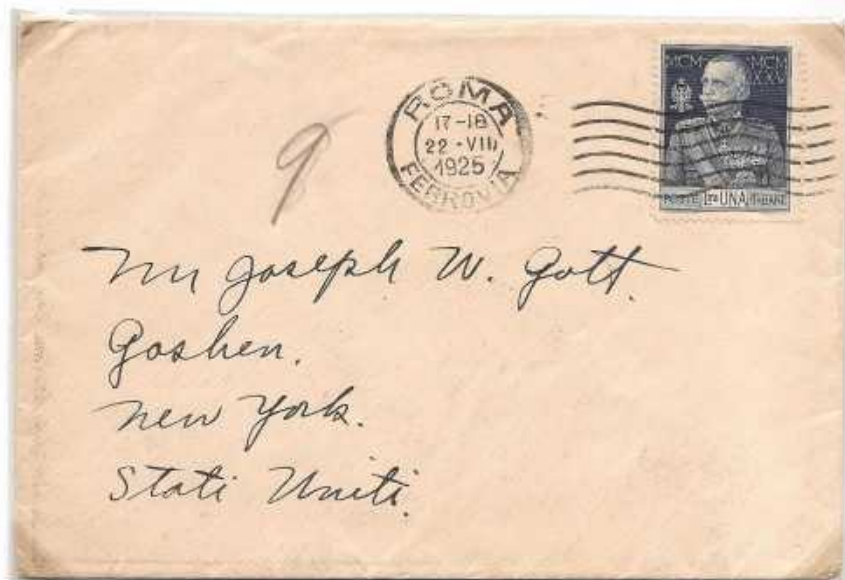 ROMA
17-18
22·VIII
1925
FERROVIA
MCM MCM
XXV
POSTE Lire UNA ITALIANE
9
Mr Joseph W. Gott.
Goshen.
New York.
Stati Uniti.